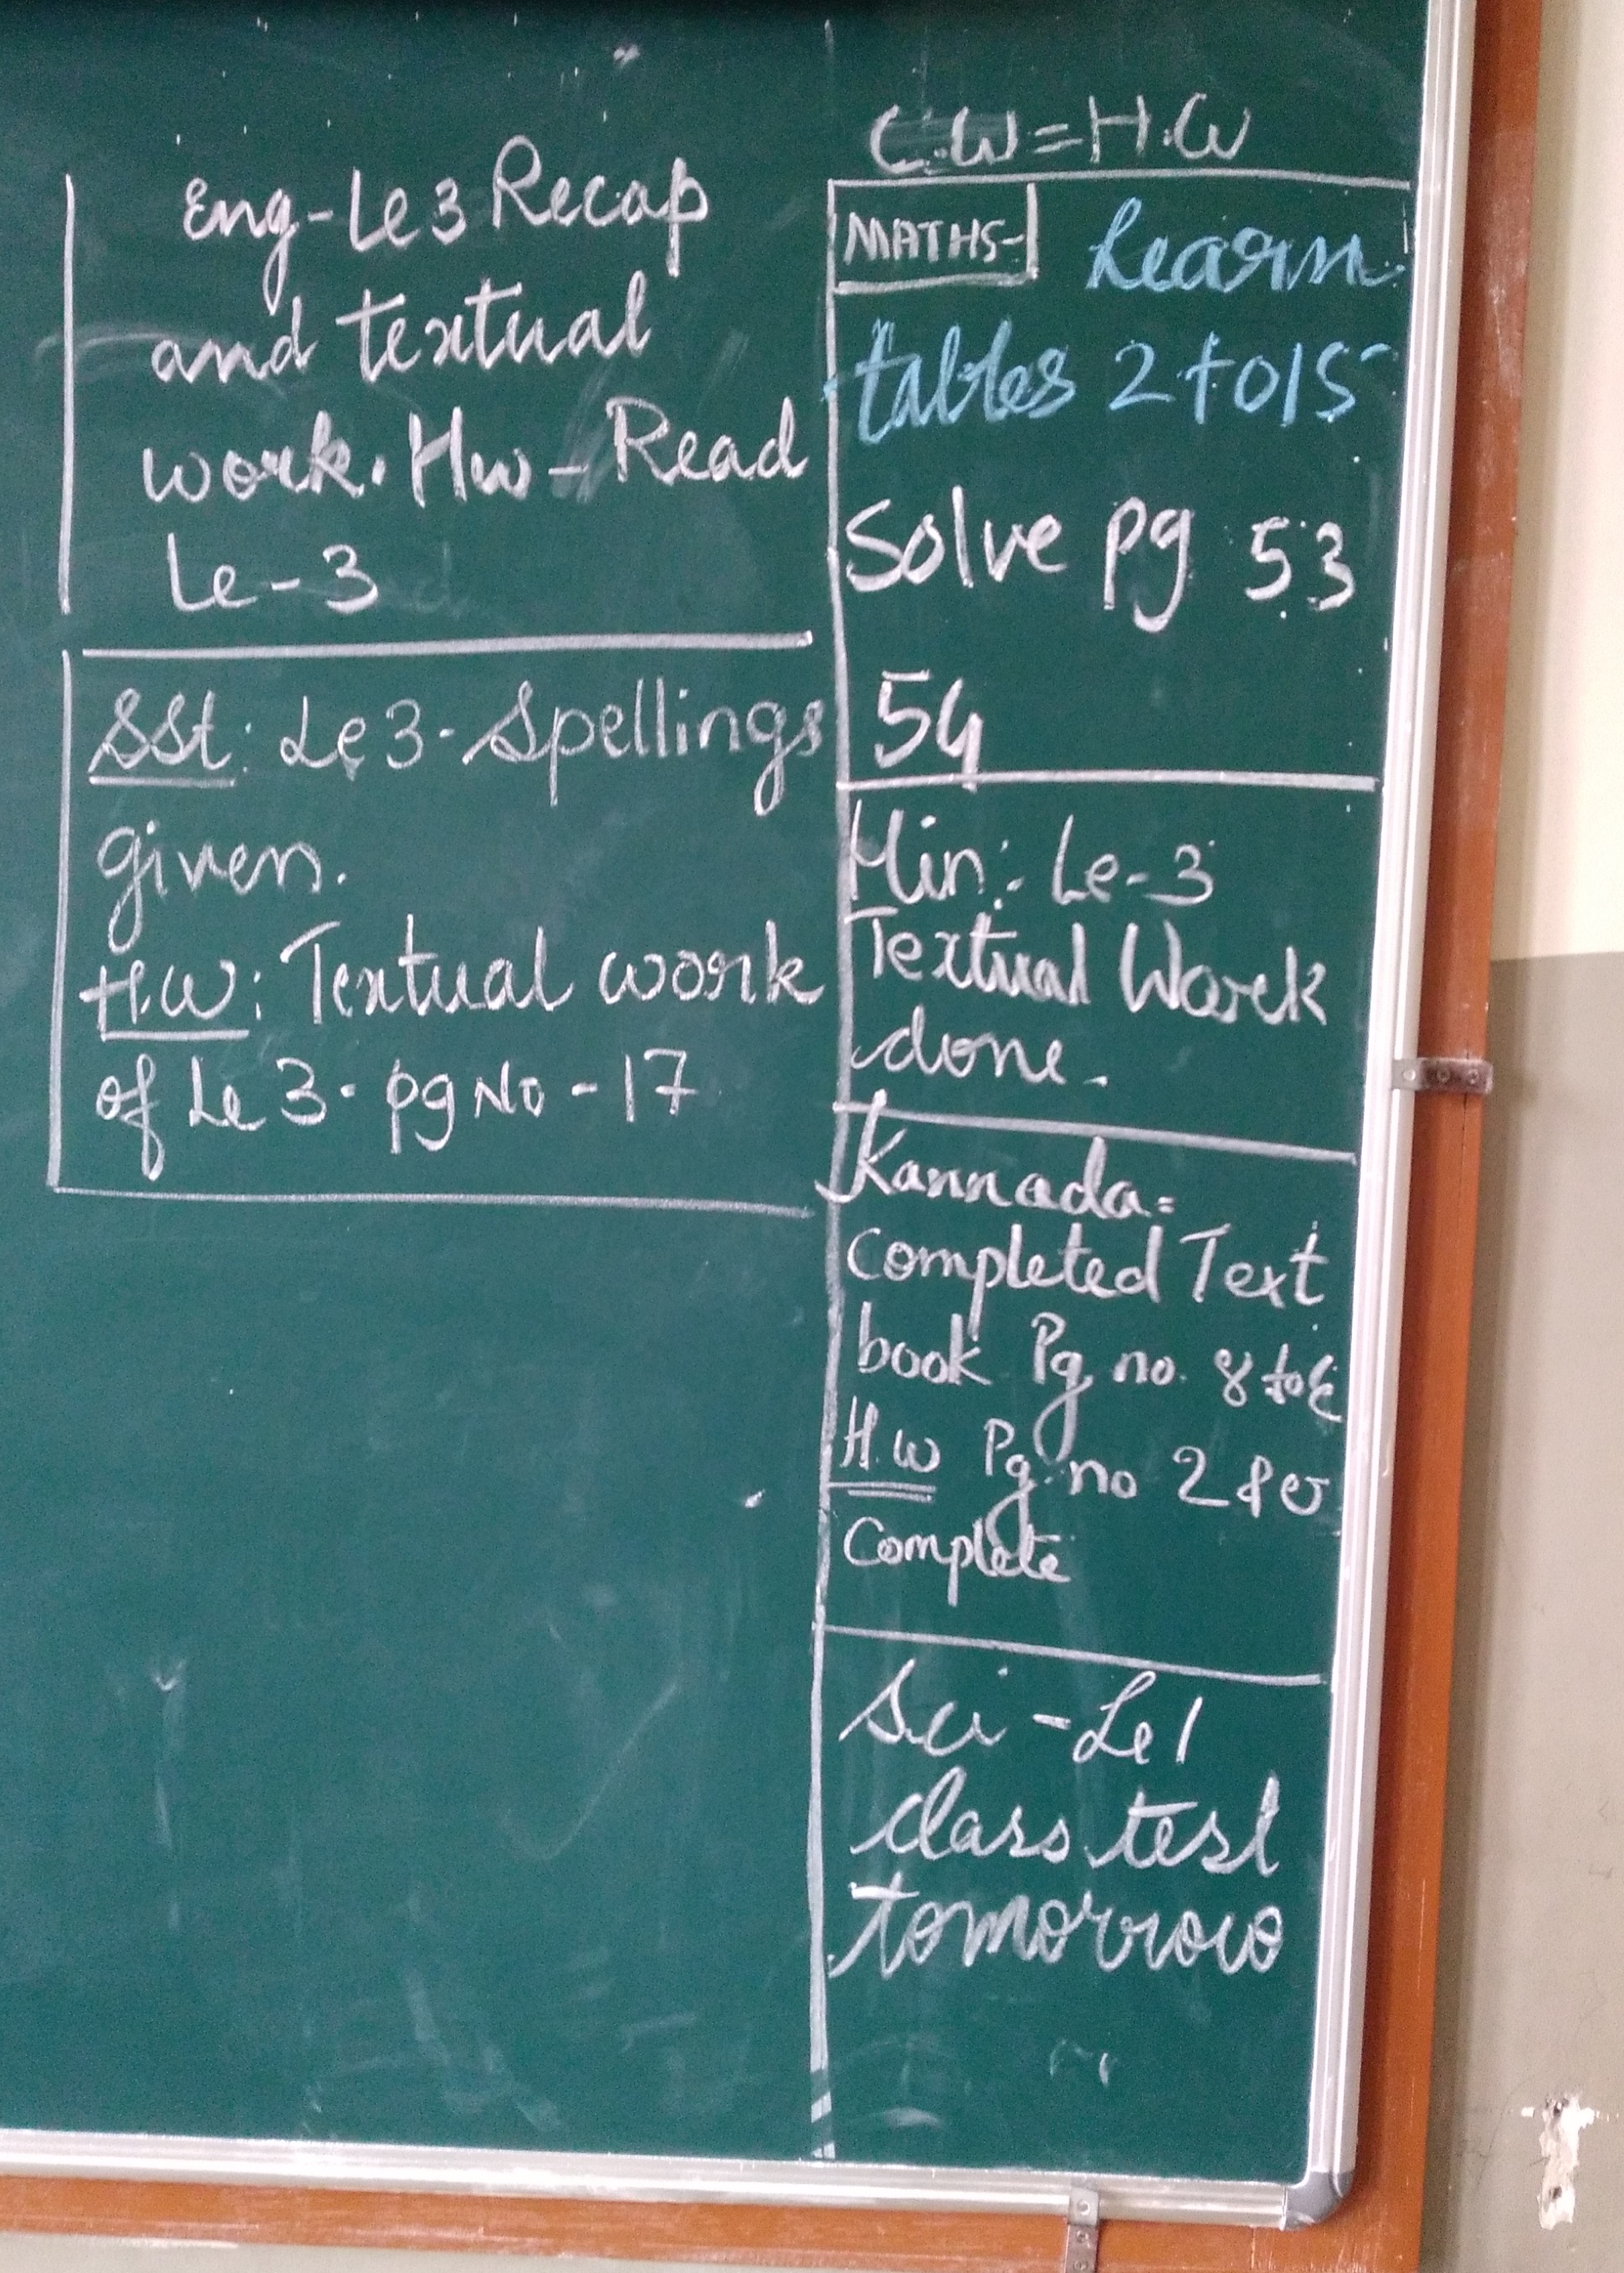 Eng-Le 3 Recap
and textual
work. Hw - Read
Le-3
SSt: Le 3 - Spellings
given.
H.W: Textual work
of Le 3. pg No - 17
C.W = H.W
MATHS- Learn
tables 2 to 15
Solve pg 53
54
Hin: Le-3
Textual Work
done.
Kannada=
Completed Text
book Pg no. 8 to
H.W Pg no 2
Complete
Sci - Le 1
class test
tomorrow